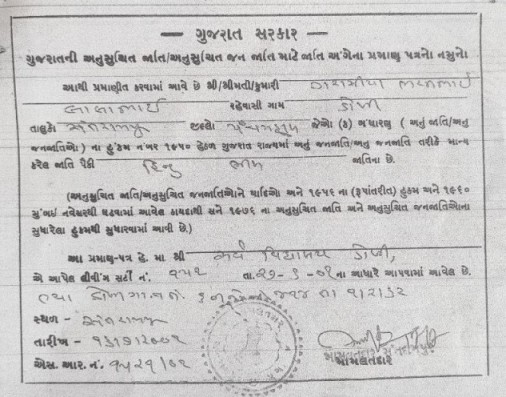 ગુજરાત સરકાર
ગુજરાતની અનુસુચિત જાતિ/અનુસુચિત જન જાતિ માટે જાતિ અંગેના પ્રમાણ પત્રનો નમુનો
આથી પ્રમાણીત કરવામાં આવે છે શ્રી/શ્રીમતી/કુમારી
રહેવાસી ગામ ડોળી
તાલુકો સંતરામપુર જીલ્લો પંચમહાલ જેઓ (ક) બંધારણ ( અનુ જાતિ/અનુ
જનજાતિઓ ) ના હુંકમ નંબર ૧૯૫૦ હેઠળ ગુજરાત રાજ્યમાં અનુ જનજાતિ/અનુ જનજાતિ તરીકે માન્ય
કરેલ જાતિ પૈકી હિન્દુ જાતિના છે.
(અનુસુચિત જાતિ/અનુસુચિત જનજાતિઓને યાદિઓ અને ૧૯૫૬ ના (રૂપાંતરીત) હુકમ અને ૧૯૬૦
મુંબઇ નવેસરથી ઘડવામાં આવેલ કાયદાથી સને ૧૯૭૬ ના અનુસુચિત જાતિ અને અનુસુચિત જનજાતિઓના
સુધારેલા હુકમથી સુધારવામાં આવી છે.)
આ પ્રમાણ-પત્ર હે. મા શ્રી વિદ્યાલય ડોળી,
એ આપેલ લીવીંગ સર્ટી નં. ૧૫૨ ના આધારે આપવામાં આવેલ છે.
તથા
સ્થળ - સંતરામપુર
તારીખ -
એસ. આર. નં. ૧૫૨૧/૦૨
મામલતદાર